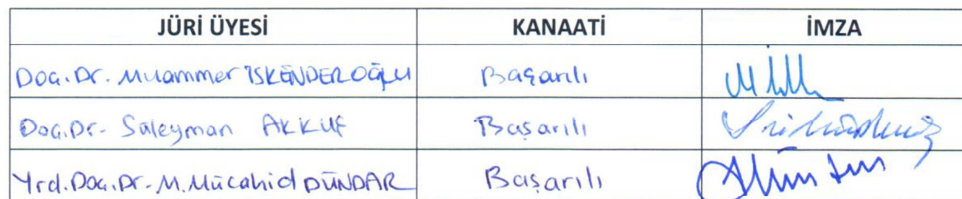 JÜRİ ÜYESİ KANAATİ İMZA
Doç.Dr. Muammer İSKENDEROĞLU Başarılı
Doç.Dr. Süleyman AKKUŞ Başarılı
Yrd.Doç.Dr. M.Mücahid DÜNDAR Başarılı